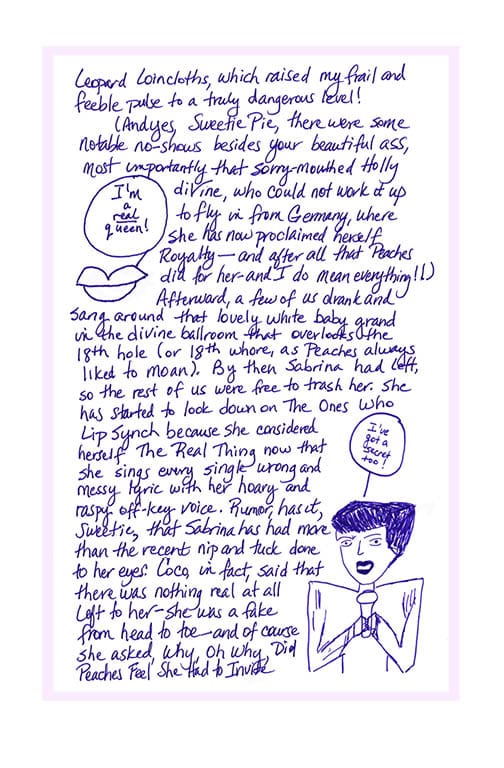 Leopard Loincloths, which raised my frail and
feeble pulse to a truly dangerous level!
(And yes, Sweetie Pie, there were some
notable no-shows besides your beautiful ass,
most importantly that sorry-mouthed Holly
diVine, who could not work it up
to fly in from Germany, where
she has now proclaimed herself
Royalty—and after all that Peaches
did for her—and I do mean everything!!)
I'm
a
real
queen!
Afterward, a few of us drank and
sang around that lovely white baby grand
in the divine ballroom that overlooks the
18th hole (or 18th whore, as Peaches always
liked to moan). By then Sabrina had left,
so the rest of us were free to trash her. She
has started to look down on The Ones Who
Lip Synch because she considered
herself The Real Thing now that
she sings every single wrong and
messy lyric with her hoary and
raspy off-key voice. Rumor, has it,
Sweetie, that Sabrina has had more
than the recent nip and tuck done
to her eyes. Coco, in fact, said that
there was nothing real at all
left to her—she was a fake
from head to toe—and of cause
she asked, Why, Oh Why, Did
Peaches Feel She Had to Invite
I've
got a
secret
too!